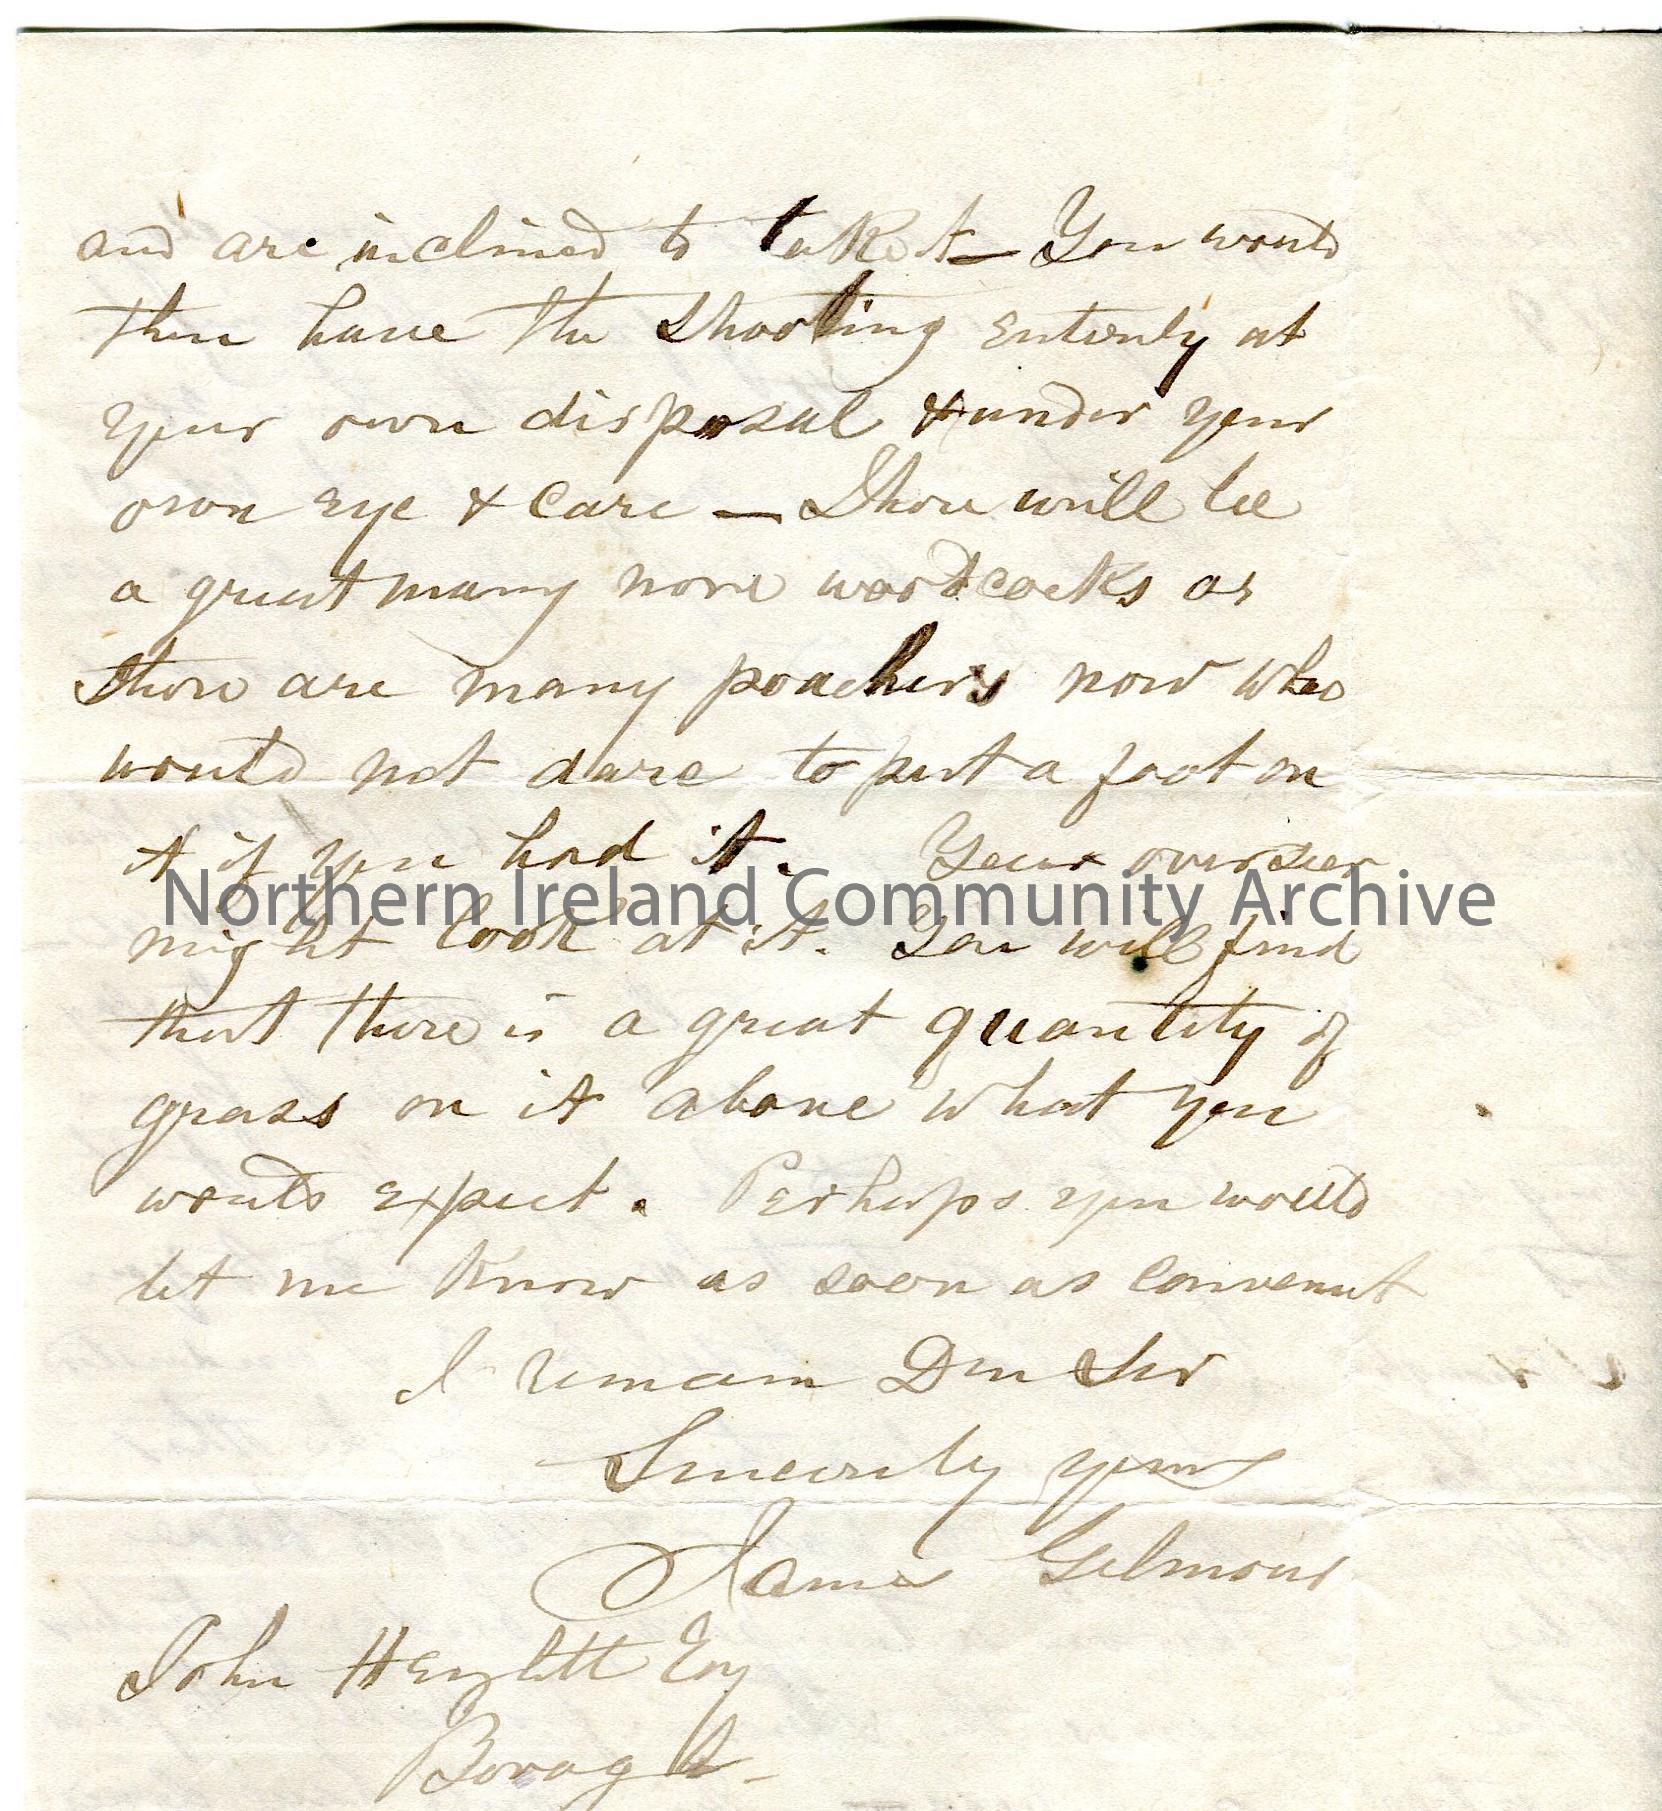 and are inclined to take it — You would
then have the shooting entirely at
your own disposal & under your
own eye & care — There will be
a great many more woodcocks as
there are many poachers now who
would not dare to put a foot on
it if you had it. Your overseer
Northern Ireland Community Archive
might look at it. You will find
that there is a great quantity of
grass on it above what you
would expect. Perhaps you would
let me know as soon as convenient
I remain Dear Sir
Sincerely yours
James Gilmour
John Hezlett Esq
Bovagh